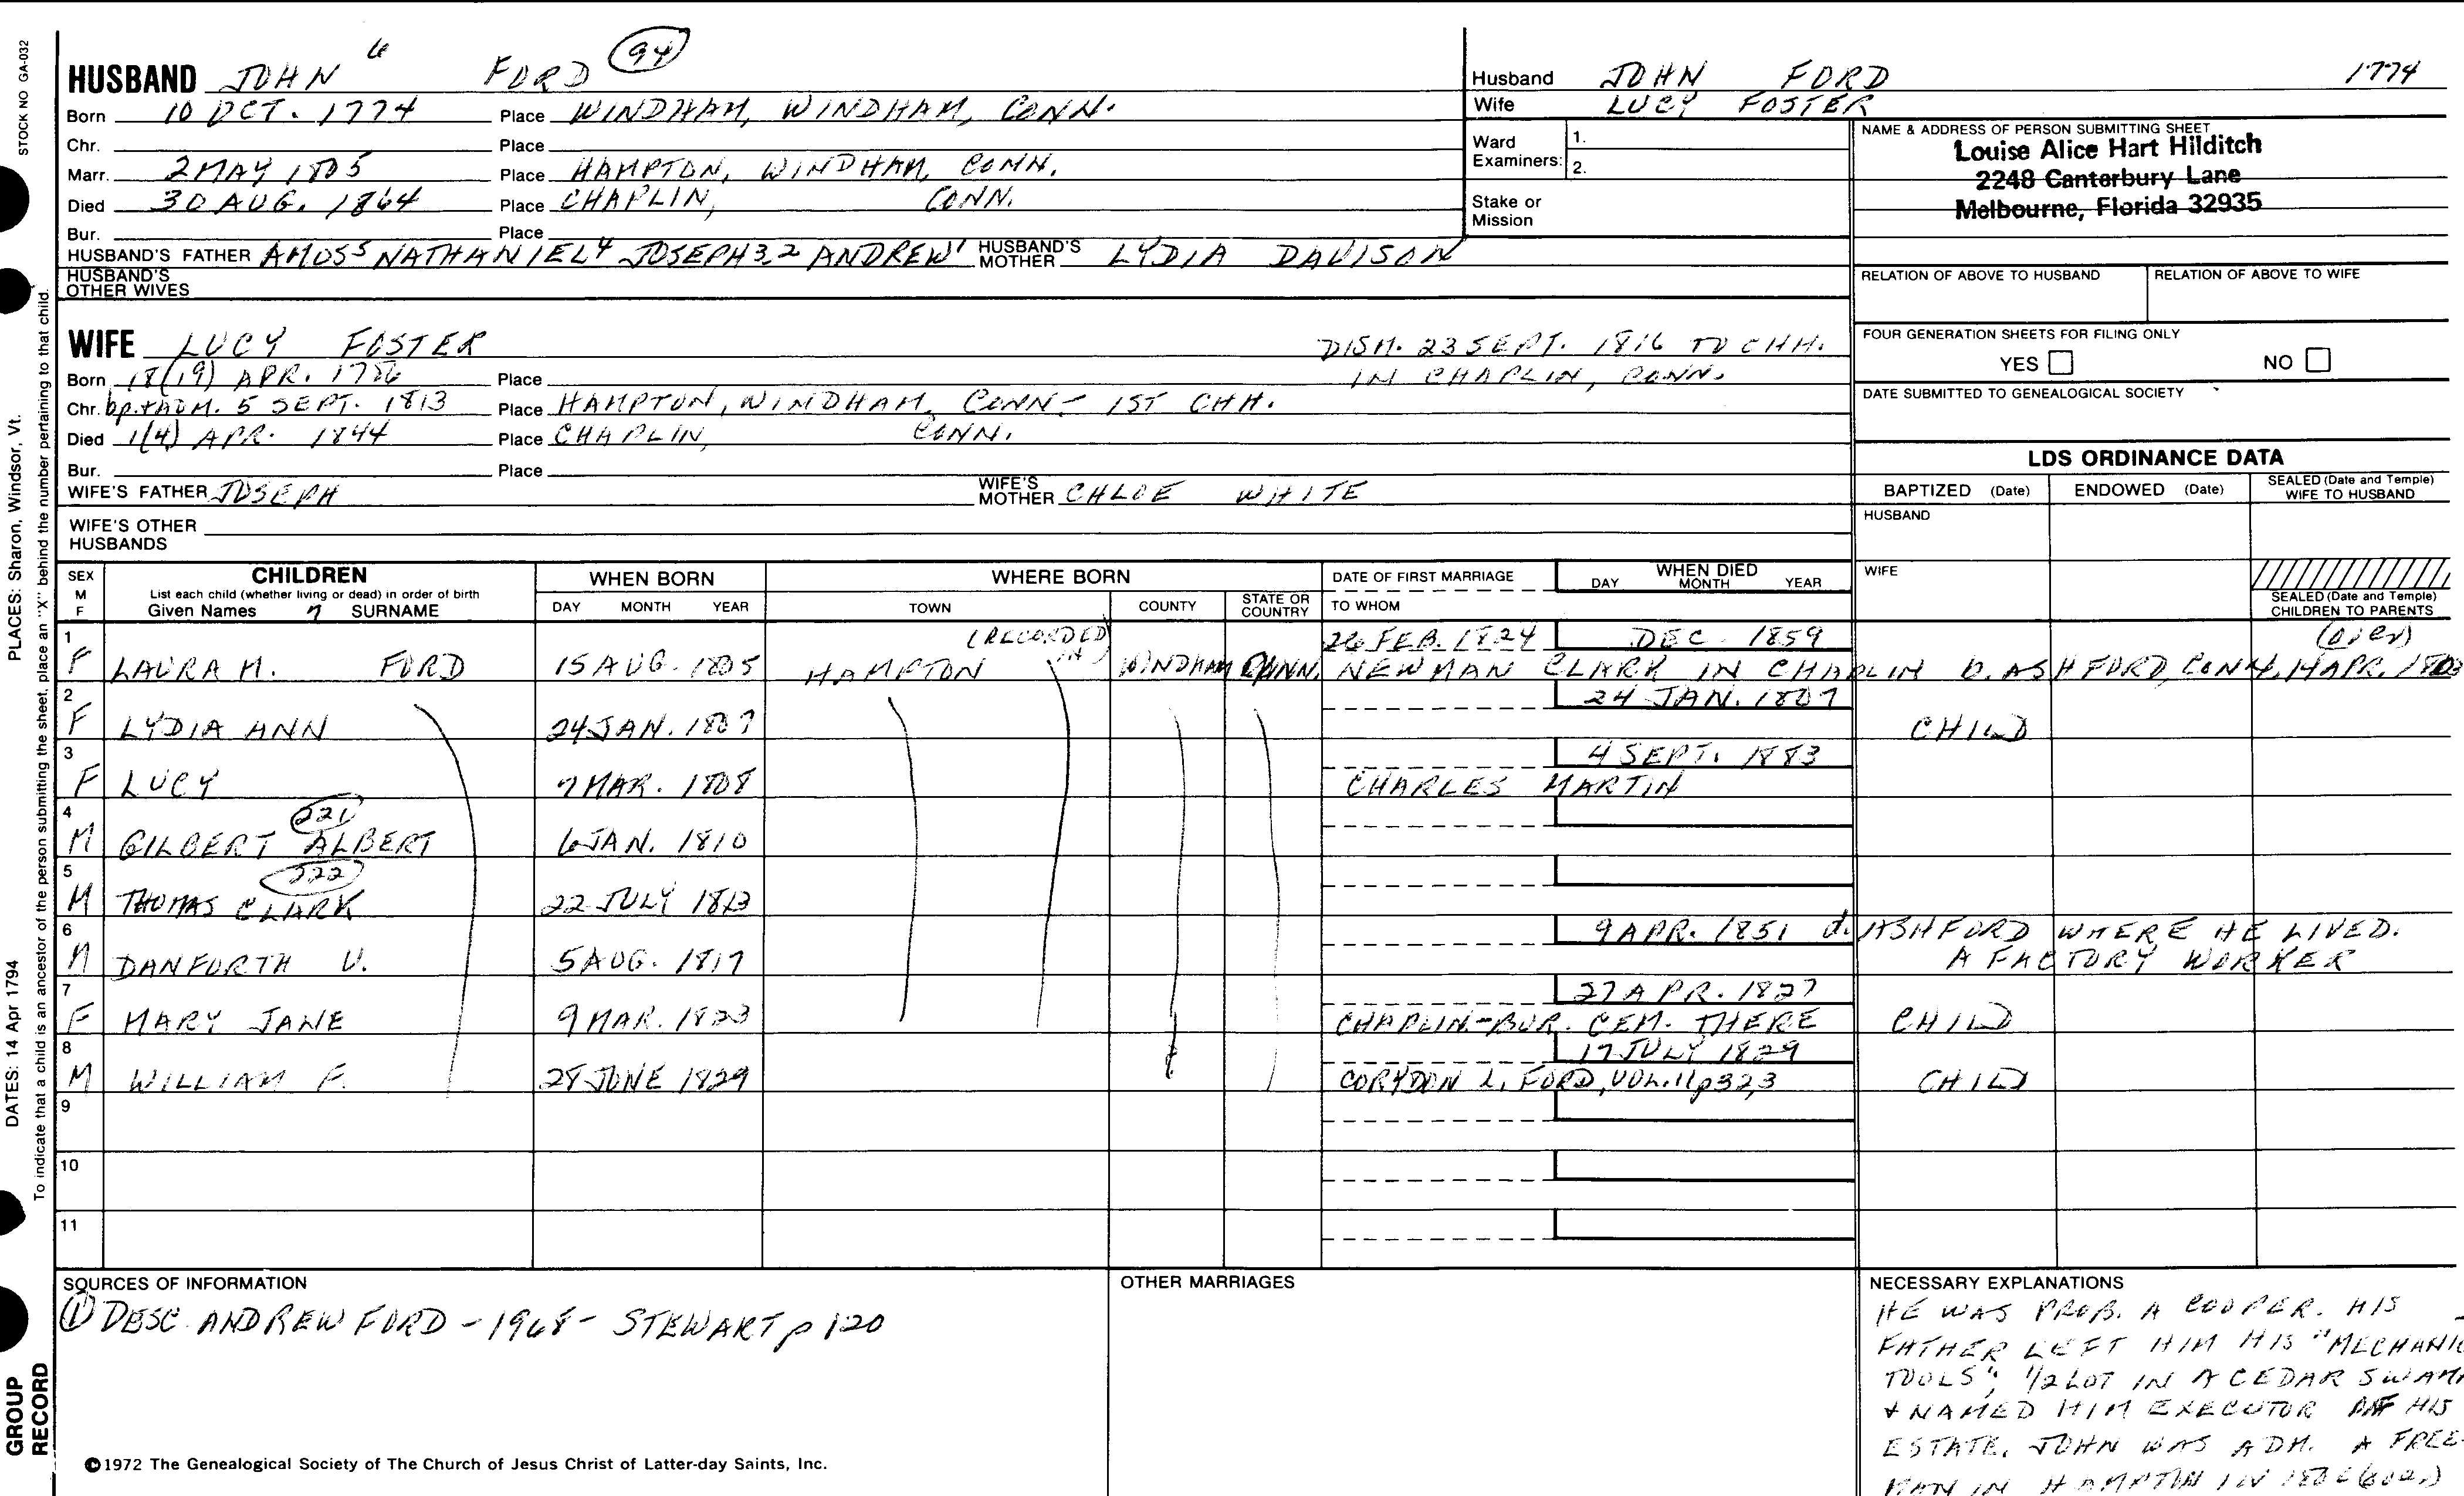 STOCK NO GA-032
HUSBAND JOHN 6 FORD 94
Born 10 OCT. 1774 Place WINDHAM, WINDHAM, CONN.
Chr. Place
Marr. 2 MAY 1805 Place HAMPTON, WINDHAM, CONN.
Died 30 AUG. 1864 Place CHAPLIN, CONN.
Bur. Place
HUSBAND'S FATHER AMOS5 NATHANIEL4 JOSEPH3,2 ANDREW1 HUSBAND'S MOTHER LYDIA DAVISON
HUSBAND'S OTHER WIVES
Husband JOHN FORD 1774
Wife LUCY FOSTER
Ward Examiners: 1.
2.
Stake or Mission
NAME & ADDRESS OF PERSON SUBMITTING SHEET
Louise Alice Hart Hilditch
2248 Canterbury Lane
Melbourne, Florida 32935
RELATION OF ABOVE TO HUSBAND RELATION OF ABOVE TO WIFE
FOUR GENERATION SHEETS FOR FILING ONLY
YES NO
DATE SUBMITTED TO GENEALOGICAL SOCIETY
WIFE LUCY FOSTER DISM. 23 SEPT. 1816 TO CHH.
Born 18(19) APR. 1786 Place IN CHAPLIN, CONN.
Chr. bp.+ADM. 5 SEPT. 1813 Place HAMPTON, WINDHAM, CONN - 1ST CHH.
Died 1(4) APR. 1844 Place CHAPLIN, CONN.
Bur. Place
WIFE'S FATHER JOSEPH WIFE'S MOTHER CHLOE WHITE
WIFE'S OTHER HUSBANDS
LDS ORDINANCE DATA
BAPTIZED (Date) ENDOWED (Date) SEALED (Date and Temple) WIFE TO HUSBAND
HUSBAND
WIFE
SEALED (Date and Temple) CHILDREN TO PARENTS
SEX M F CHILDREN List each child (whether living or dead) in order of birth Given Names 7 SURNAME
WHEN BORN DAY MONTH YEAR
WHERE BORN TOWN COUNTY STATE OR COUNTRY
DATE OF FIRST MARRIAGE TO WHOM
WHEN DIED DAY MONTH YEAR
1 (RECORDED IN) 26 FEB. 1824 DEC. 1859 (over)
F LAURA M. FORD 15 AUG. 1805 HAMPTON WINDHAM CONN. NEWMAN CLARK IN CHAPLIN b. ASHFORD, CONN. 14 APR. 1803
2 24 JAN. 1807
F LYDIA ANN 24 JAN. 1807 CHILD
3 4 SEPT. 1883
F LUCY 7 MAR. 1808 CHARLES MARTIN
4 221
M GILBERT ALBERT 6 JAN. 1810
5 222
M THOMAS CLARK 22 JULY 1813
6 9 APR. 1851 d. ASHFORD WHERE HE LIVED.
M DANFORTH U. 5 AUG. 1817 A FACTORY WORKER
7 27 APR. 1827
F MARY JANE 9 MAR. 1823 CHAPLIN-BUR. CEM. THERE CHILD
8 17 JULY 1829
M WILLIAM F. 28 JUNE 1829 CORYDON L. FORD, VOL. 11 p323 CHILD
9
10
11
SOURCES OF INFORMATION
① DESC. ANDREW FORD - 1968 - STEWART p 120
OTHER MARRIAGES
NECESSARY EXPLANATIONS
HE WAS PROB. A COOPER. HIS
FATHER LEFT HIM HIS "MECHANIC
TOOLS", 1/2 LOT IN A CEDAR SWAMP
+ NAMED HIM EXECUTOR OF HIS
ESTATE. JOHN WAS ADM. A FREE-
MAN IN HAMPTON IN
©1972 The Genealogical Society of The Church of Jesus Christ of Latter-day Saints, Inc.
PLACES: Sharon, Windsor, Vt.
DATES: 14 Apr 1794
To indicate that a child is an ancestor of the person submitting the sheet, place an "X" behind the number pertaining to that child.
GROUP
RECORD